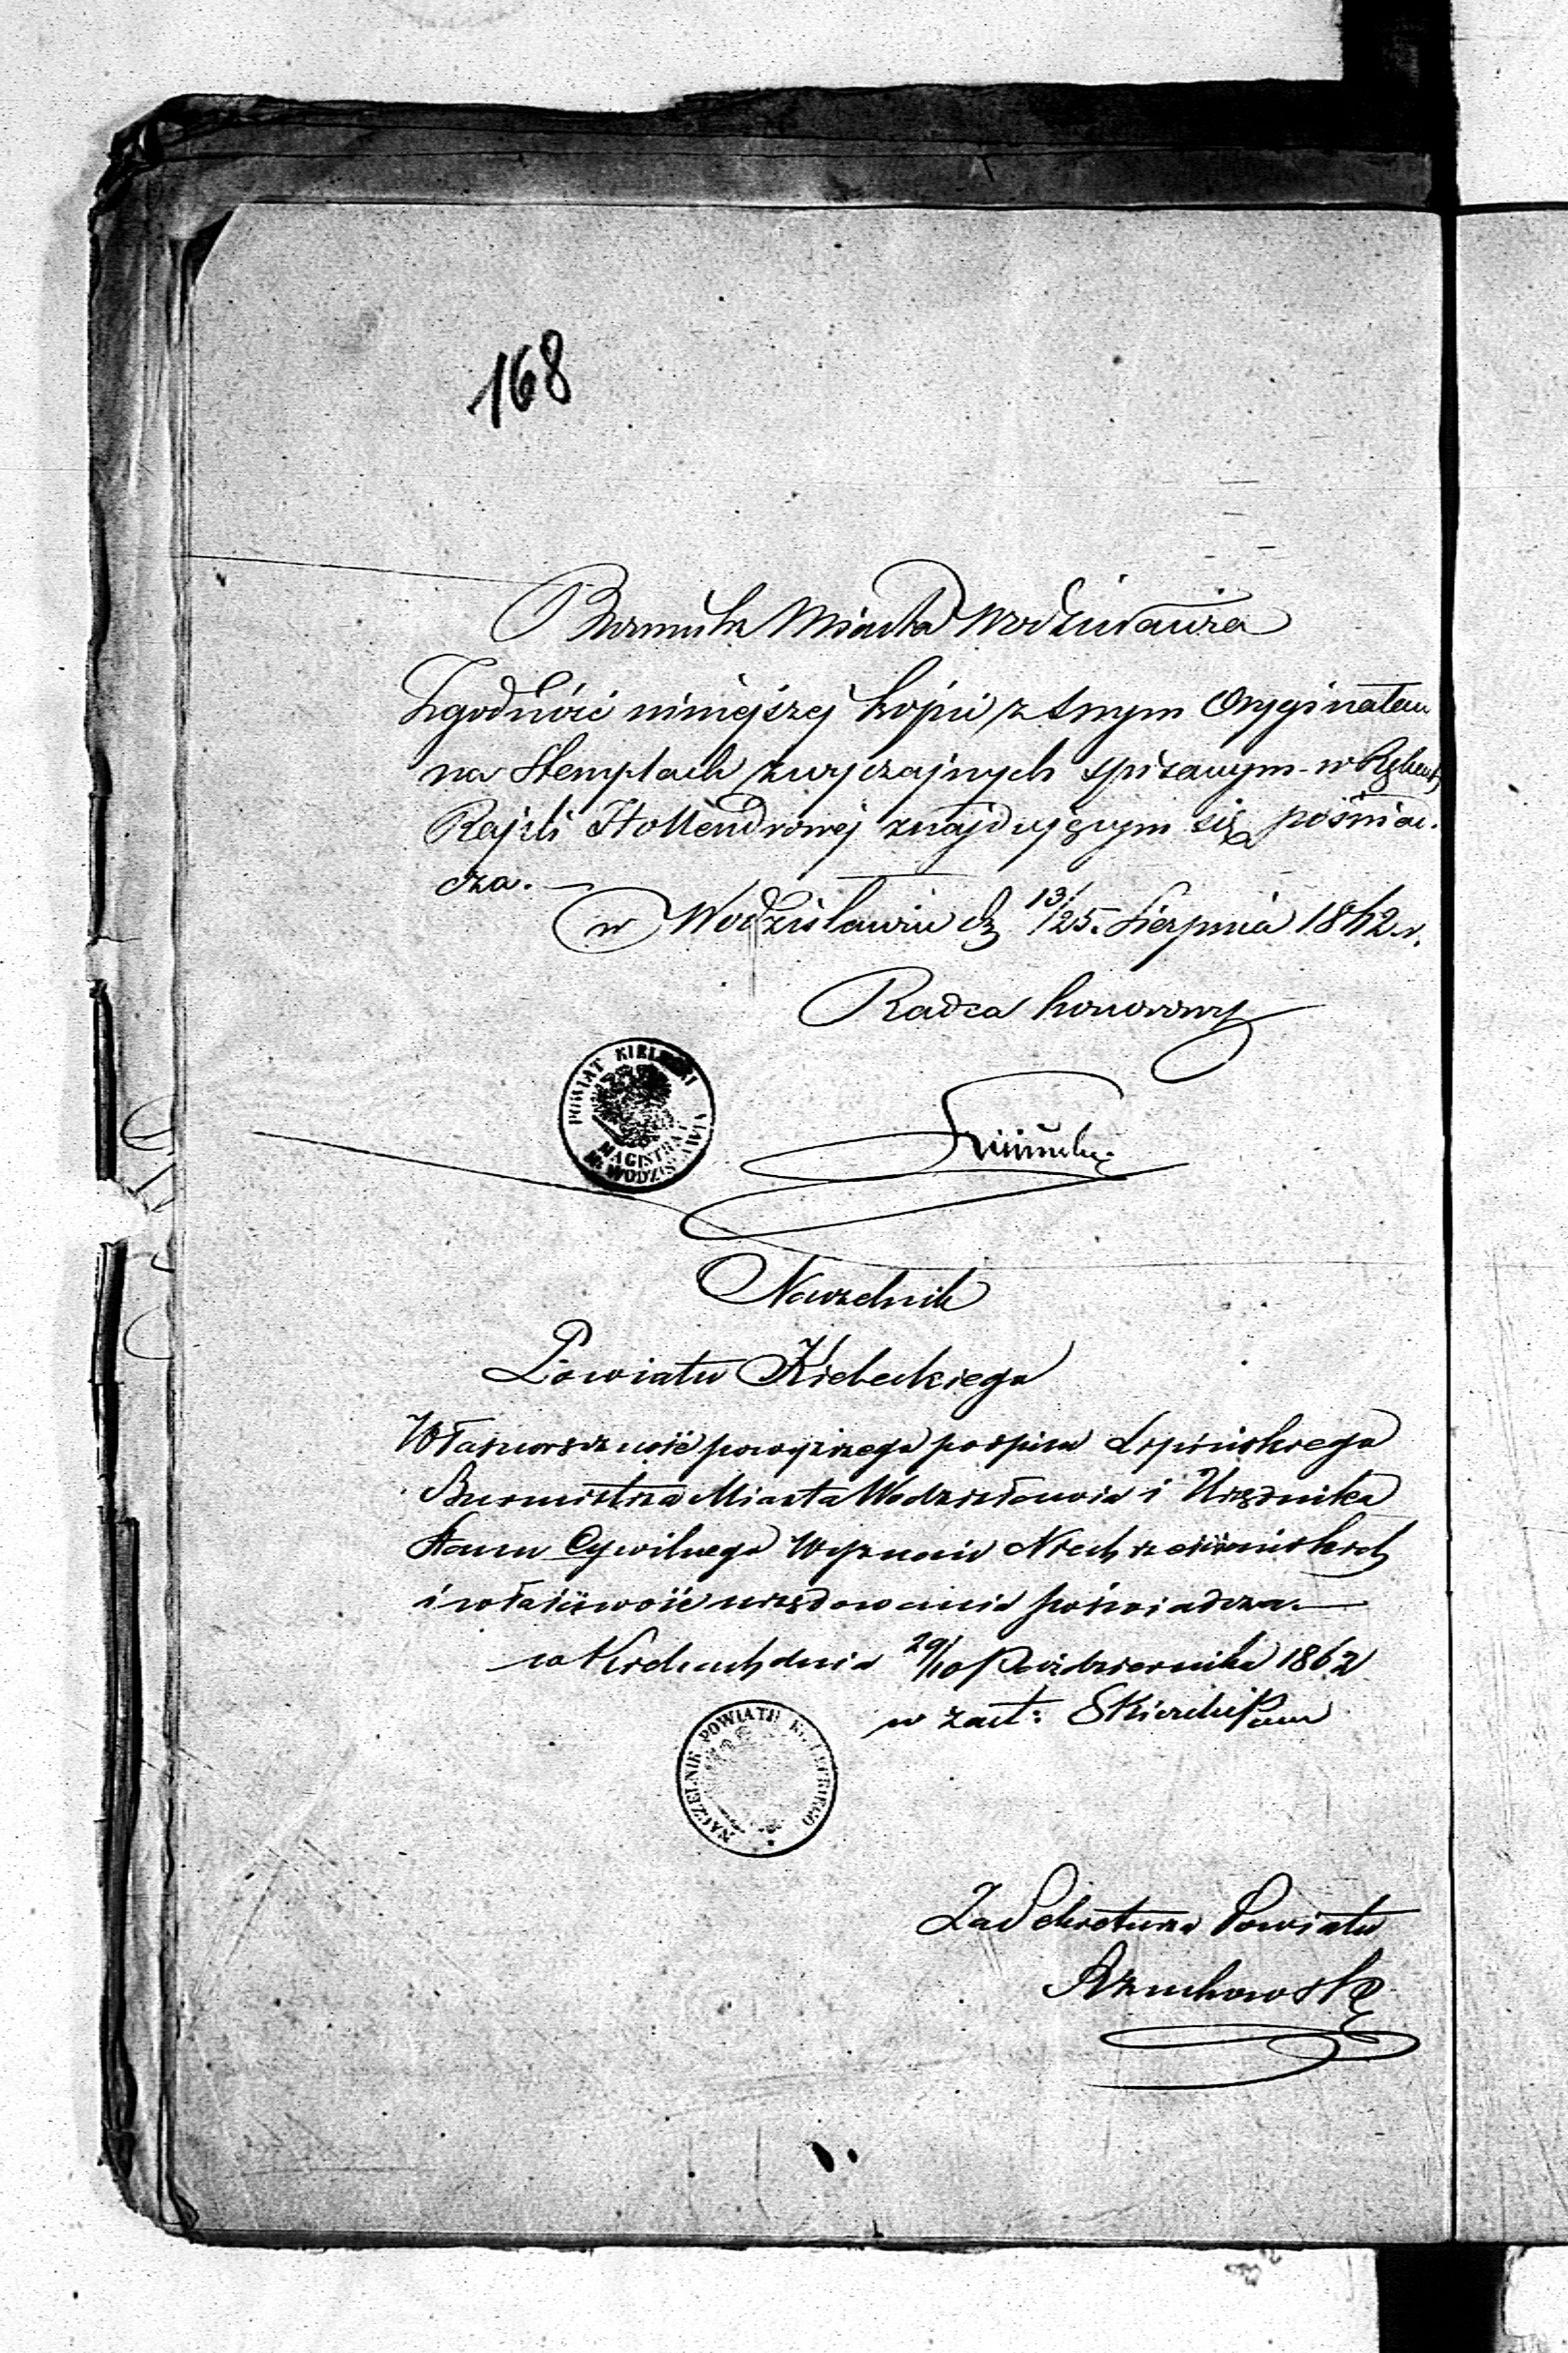 168
Burmistrz Miasta Wodzisławia
Zgodność niniejszej kopii z swym Oryginałem
na Stemplach zwyczajnych spisanym w Ręku
Rajzli Hollendrowej znajdującym się poświad-
cza.
w Wodzisławiu d. 13/25. Sierpnia 1862 r.
Radca honorowy
POWIAT KIELECKI
MAGISTRAT
M. WODZISŁAWIA
Naczelnik
Powiatu Kieleckiego
Własnoręczność powyższego podpisu Lipińskiego
Burmistrza Miasta Wodzisławia i Urzędnika
Stanu Cywilnego Wyznań Niechrześciańskich
i właściwość urzędowania poświadcza.
w Kielcach dnia 29/10 Października 1862
w zast:
NACZELNIK POWIATU KIELECKIEGO
Za Sekretarza Powiatu